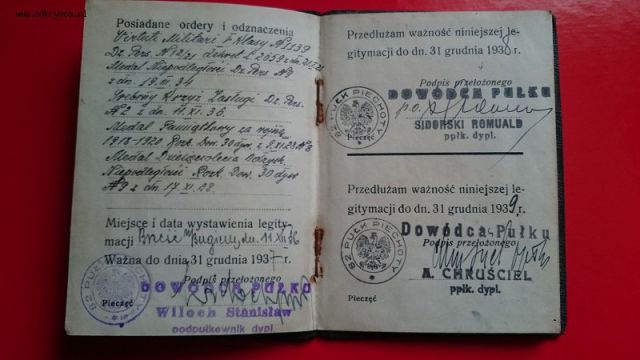 www.odkrywca.pl
Posiadane ordery i odznaczenia
Virtuti Militari V klasy Nº 1139
Dz. Pers. Nº 12/21 dekret L 2659
Medal Niepodległości Dz. Pers. Nº 9
z dn. 19.III.34
Srebrny Krzyż Zasługi Dz. Pers.
Nº 2 z dn. 11.XI.36.
Medal Pamiątkowy za wojnę
1918-1920 Rozk. Dow. 30 dyw.
Medal Dziesięciolecia Odzysk.
Niepodległości Rozk. Dow. 30 dyw
Nº 9 z dn. 17.XI.28.
Miejsce i data wystawienia legity-
macji Brześć n/Bugiem, dn. 11.XII.36
Ważna do dnia 31 grudnia 1937 r.
Podpis przełożonego
DOWÓDCA PUŁKU
Pieczęć
Wiloch Stanisław
podpułkownik dypl.
82 PUŁK PIECHOTY
Przedłużam ważność niniejszej le-
gitymacji do dn. 31 grudnia 1938 r.
Podpis przełożonego
DOWÓDCA PUŁKU
p.o.
82 PUŁK PIECHOTY
Pieczęć
SIDORSKI ROMUALD
ppłk. dypl.
Przedłużam ważność niniejszej le-
gitymacji do dn. 31 grudnia 1939 r.
Dowódca Pułku
Podpis przełożonego
82 PUŁK PIECHOTY
A. CHRUŚCIEL
ppłk. dypl.
Pieczęć